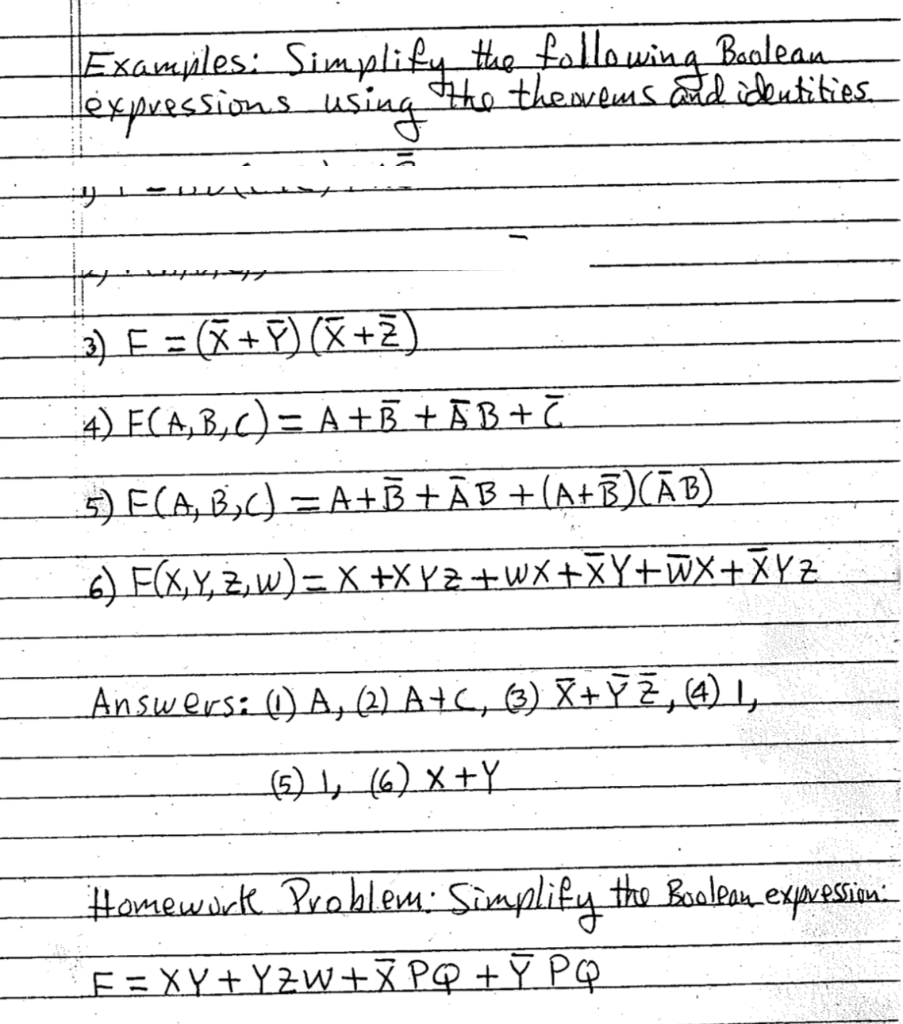 Examples: Simplify the following Boolean
expressions using the theorems and identities.
3) F = (X̄ + Ȳ) (X̄ + Z̄)
4) F(A, B, C) = A + B̄ + ĀB + C̄
5) F(A, B, C) = A + B̄ + ĀB + (A + B̄)(ĀB)
6) F(X, Y, Z, W) = X + XYZ + WX + X̄Y + W̄X + X̄YZ
Answers: (1) A, (2) A+C, (3) X̄ + ȲZ̄, (4) 1,
(5) 1, (6) X + Y
Homework Problem: Simplify the Boolean expression:
F = XY + YZW + X̄PQ + ȲPQ